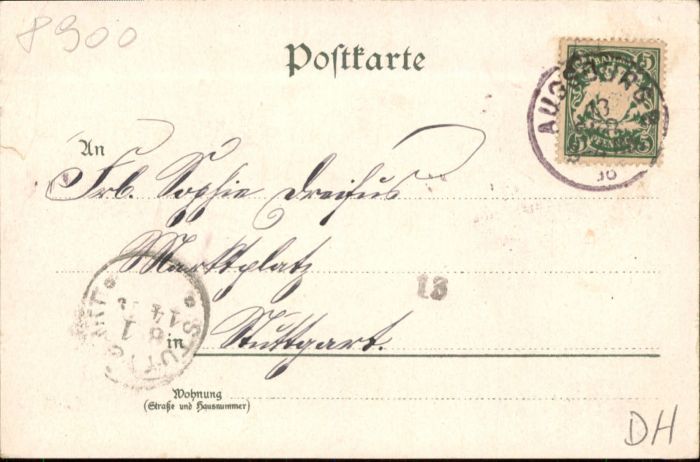 8900
Postkarte
AUGSBURG
5
5
An
Frl. Sophie Dreifus
Marktplatz
13
STUTTGART
14
in Stuttgart.
Wohnung
(Straße und Hausnummer)
DH